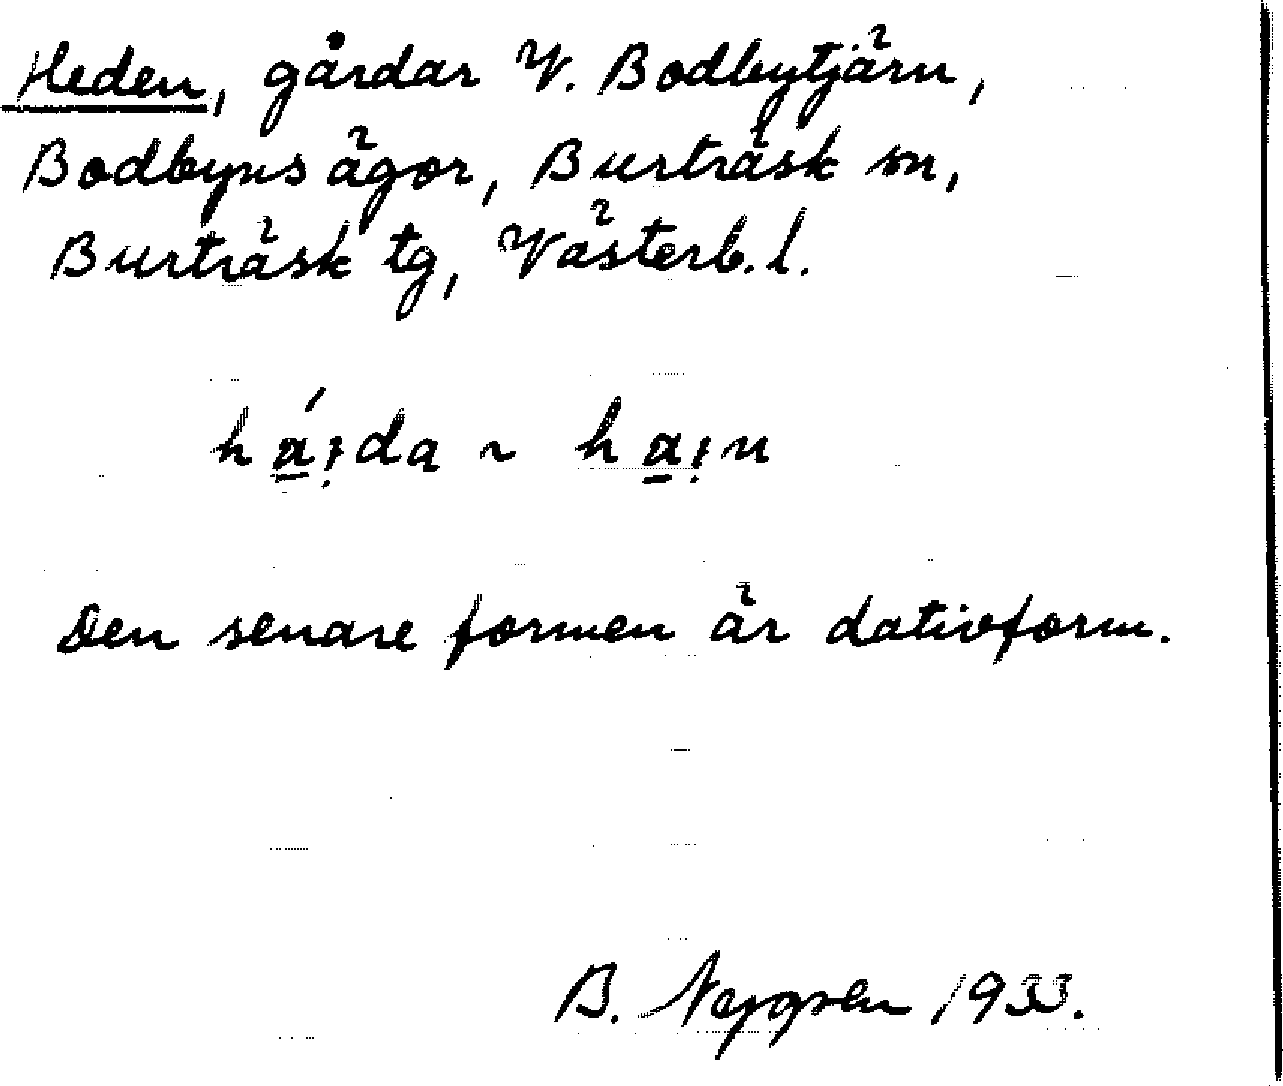 Heden, gårdar V. Bodbytjärn,
Bodbyns ägor, Burträsk sn,
Burträsk tg, Västerb. l.
há̱i̥da ~ ha̱i̥n
Den senare formen är dativform.
B. 1933.